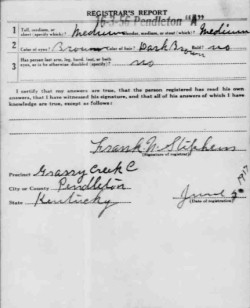 REGISTRAR'S REPORT
16-3-56 Pendleton "A"
1 Tall, medium, or short (specify which)? Medium Slender, medium, or stout (which)? Medium
2 Color of eyes? Brown Color of hair? Dark Brown Bald? no
3 Has person lost arm, leg, hand, foot, or both eyes, or is he otherwise disabled (specify)? no
I certify that my answers are true, that the person registered has read his own answers, that I have witnessed his signature, and that all of his answers of which I have knowledge are true, except as follows:
Frank W Stephens
(Signature of registrar)
Precinct Grassy Creek C
City or County Pendleton
State Kentucky
June 5" 1917
(Date of registration)